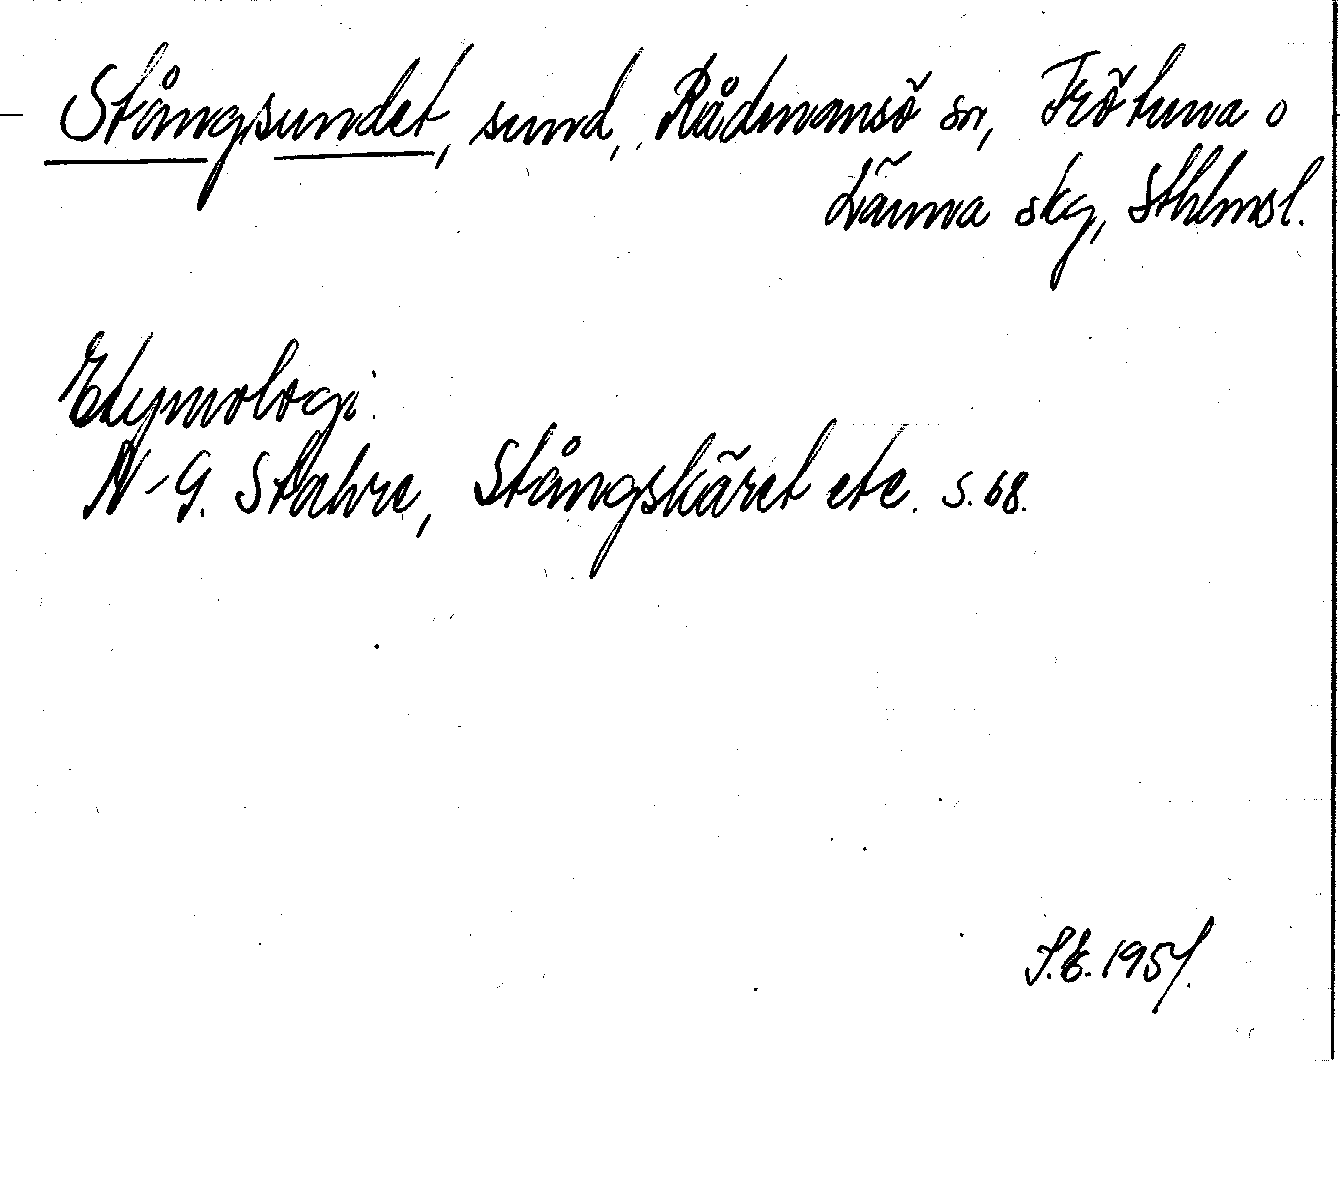 Stångsundet, sund, Rådmansö sn, Frötuna o
Länna skg, Sthlmsl.
Etymologi:
N-G. Stahre, Stångskäret etc. s. 68.
1957.